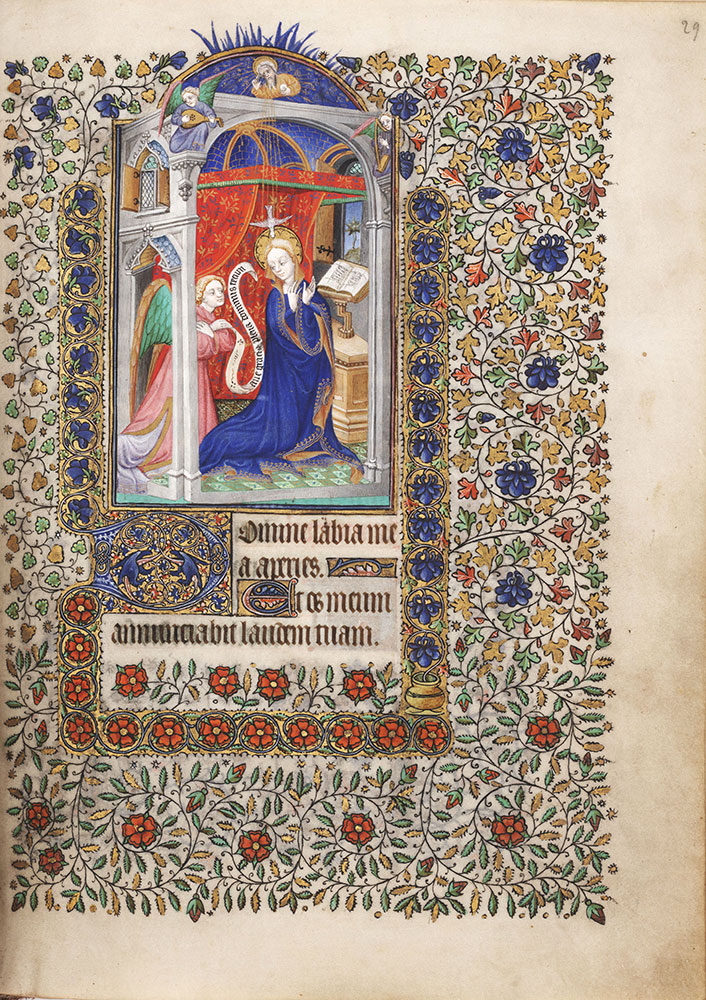 29
aue gracia plena dominus tecum
Domine labia me
a aperies.
Et os meum
annunciabit laudem tuam.